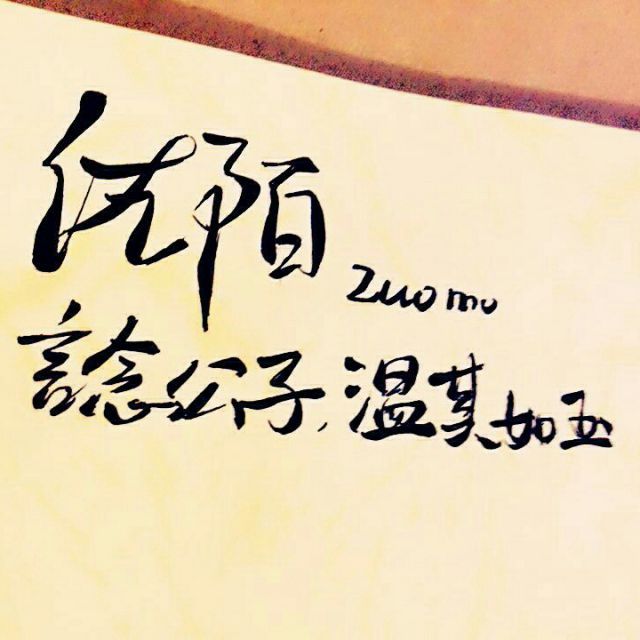 佐陌 Zuo mo
諗公子,温其如玉